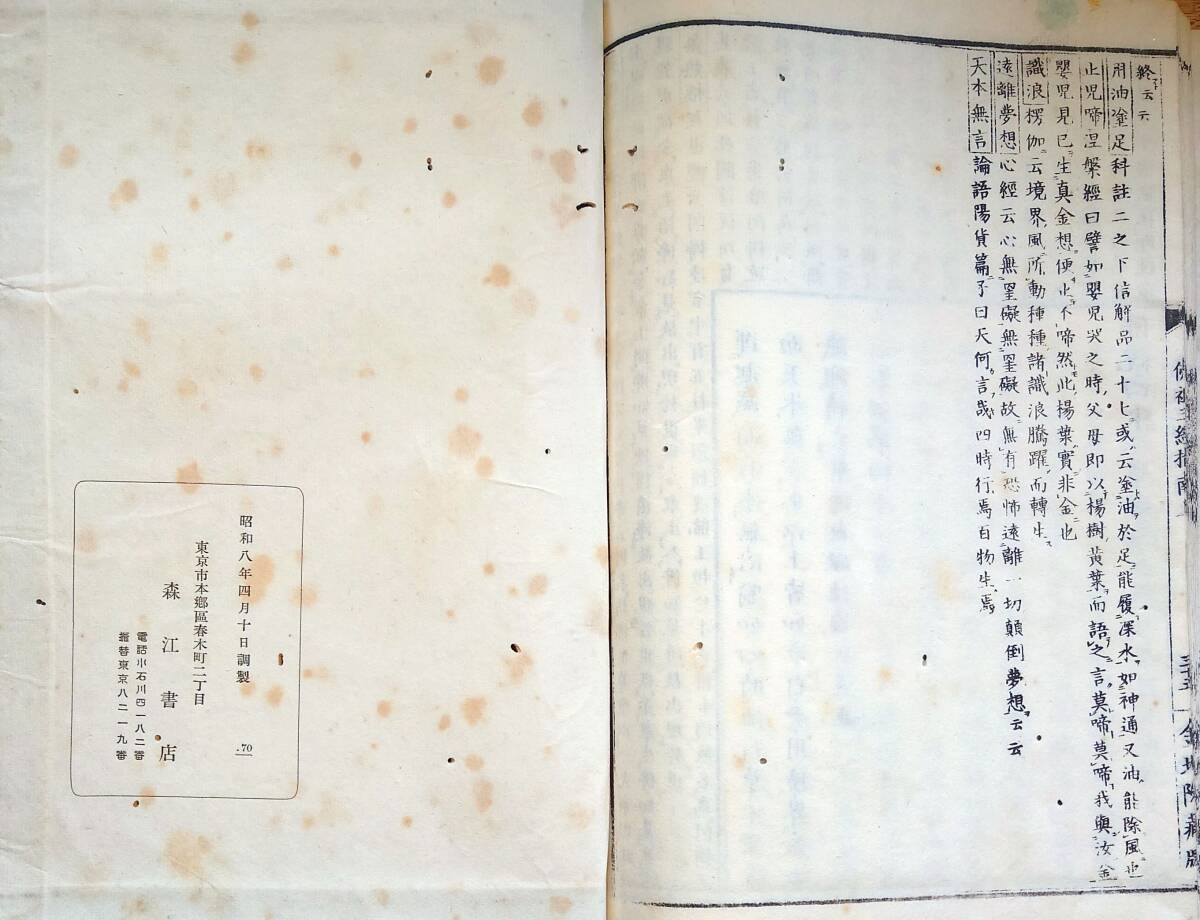 終云云
用油塗足科註二之下信解品二十七或云塗油於足能履深水如神通又油能除風也
止児啼涅槃經曰譬如嬰児哭之時父母即以楊樹黄葉而語之言莫啼莫啼我與汝金
嬰児見已生真金想便止不啼然此楊葉實非金也
識浪楞伽云境界風所動種種諸識浪騰躍而轉生
遠離夢想心經云心無罣礙無罣礙故無有恐怖遠離一切顛倒夢想云云
天本無言論語陽貨篇予曰天何言哉四時行焉百物生焉
金地院藏版
昭和八年四月十日調製
.70
東京市本郷區春木町二丁目
森江書店
電話小石川四一八二番
振替東京八二一九番